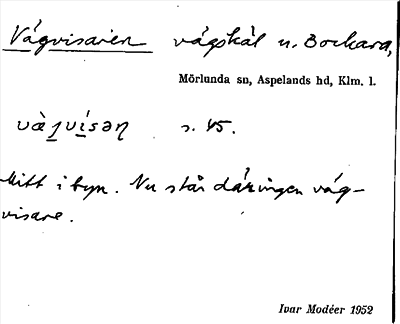 Vägvisaren vägskäl n. Bockara,
Mörlunda sn, Aspelands hd, Klm. l.
s. 45.
Mitt i byn. Nu står där ingen väg-
visare.
Ivar Modéer 1952